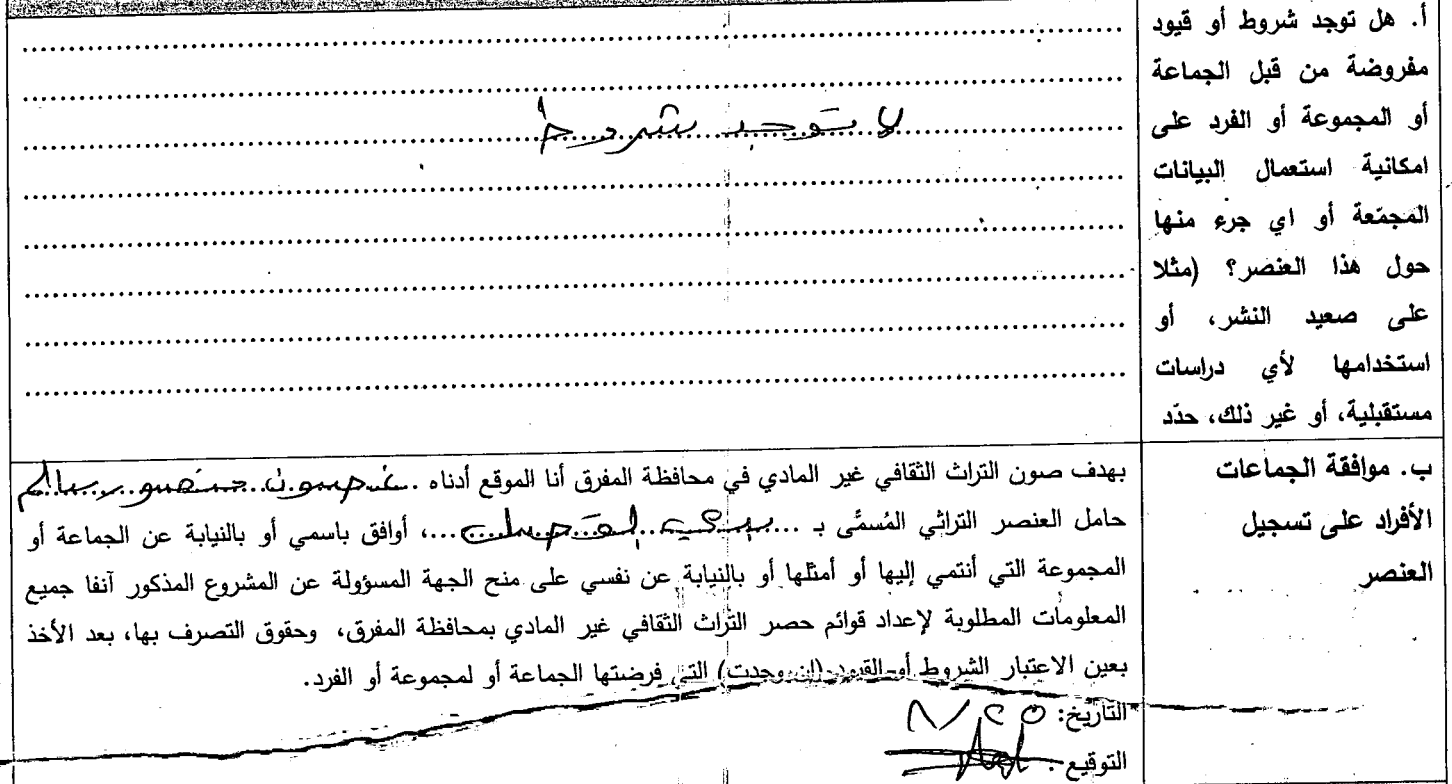 أ. هل توجد شروط أو قيود
مفروضة من قبل الجماعة
أو المجموعة أو الفرد على
امكانية استعمال البيانات
المجمّعة أو اي جرء منها
حول هذا العنصر؟ (مثلا
على صعيد النشر، أو
استخدامها لأي دراسات
مستقبلية، أو غير ذلك، حدّد
لا يوجد شروط
ب. موافقة الجماعات
الأفراد على تسجيل
العنصر
بهدف صون التراث الثقافي غير المادي في محافظة المفرق أنا الموقع أدناه
حامل العنصر التراثي المُسمَّى بـ ...، أوافق باسمي أو بالنيابة عن الجماعة أو
المجموعة التي أنتمي إليها أو أمثلها أو بالنيابة عن نفسي على منح الجهة المسؤولة عن المشروع المذكور آنفا جميع
المعلومات المطلوبة لإعداد قوائم حصر التراث الثقافي غير المادي بمحافظة المفرق، وحقوق التصرف بها، بعد الأخذ
بعين الاعتبار الشروط أو القيود (إن وجدت) التي فرضتها الجماعة أو لمجموعة أو الفرد.
التاريخ:
التوقيع: